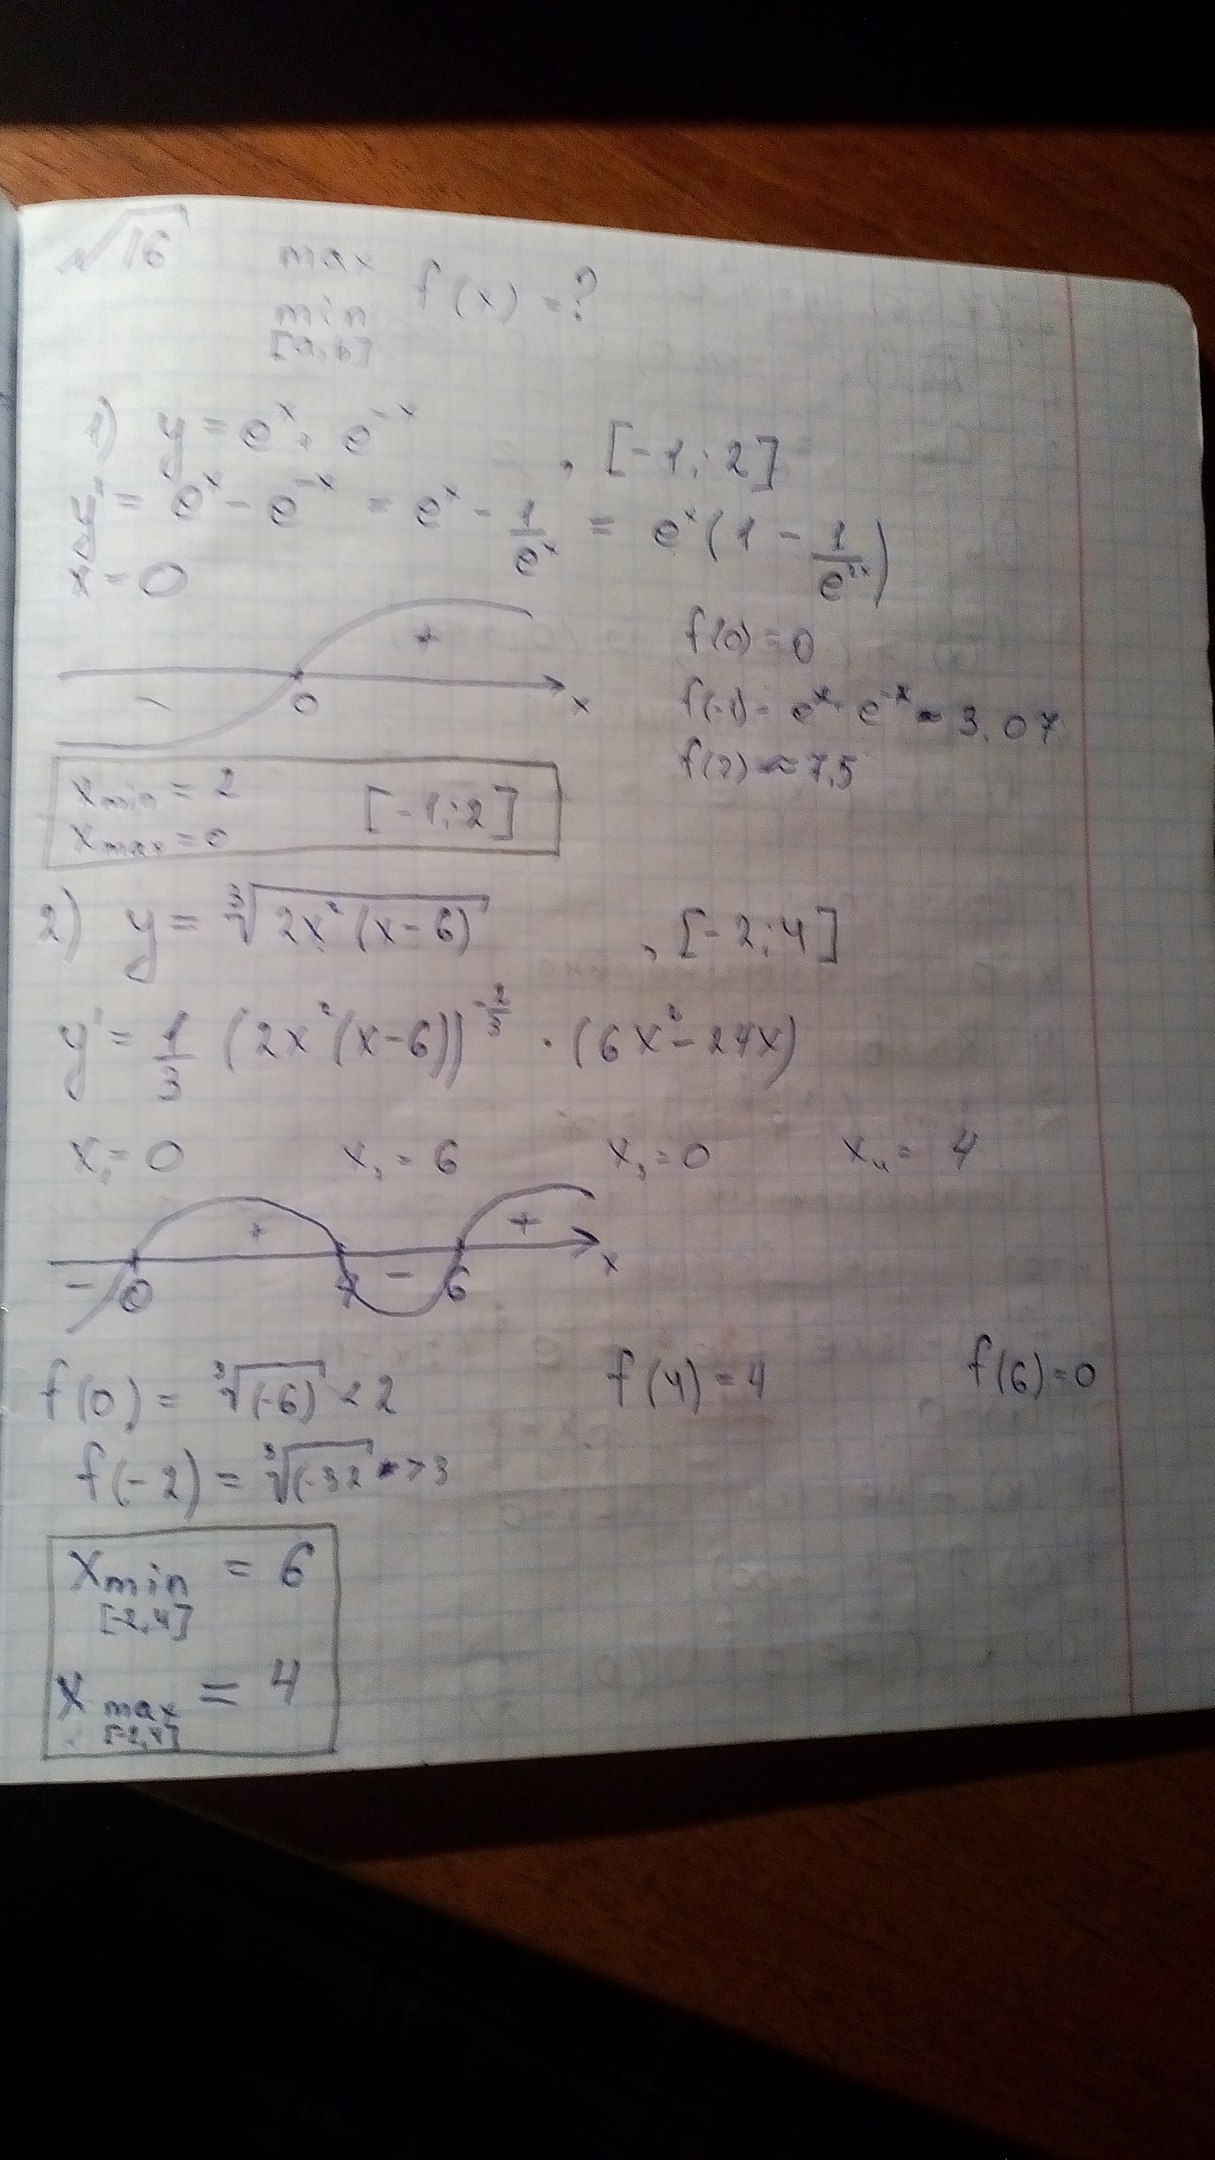 √16 max f(x) = ?
min
[a,b]
1) y = eˣ + e⁻ˣ , [-1; 2]
y' = eˣ - e⁻ˣ = eˣ - 1/eˣ = eˣ(1 - 1/e²ˣ)
x = 0
+
- 0 x
f(0) = 0
f(-1) = eˣ e⁻ˣ ≈ 3.07
f(2) ≈ 7,5
x min = 2 [-1; 2]
x max = 0
2) y = ∛(2x²(x-6)) , [-2; 4]
y' = 1/3 (2x²(x-6))^(-2/3) · (6x² - 24x)
x₁ = 0 x₂ = 6 x₃ = 0 x₄ = 4
+ +
- 0 4 - 6 x
f(0) = ∛(-6) < 2 f(4) = 4 f(6) = 0
f(-2) = ∛(-32 > 3
x min = 6
[-2,4]
x max = 4
[-2,4]